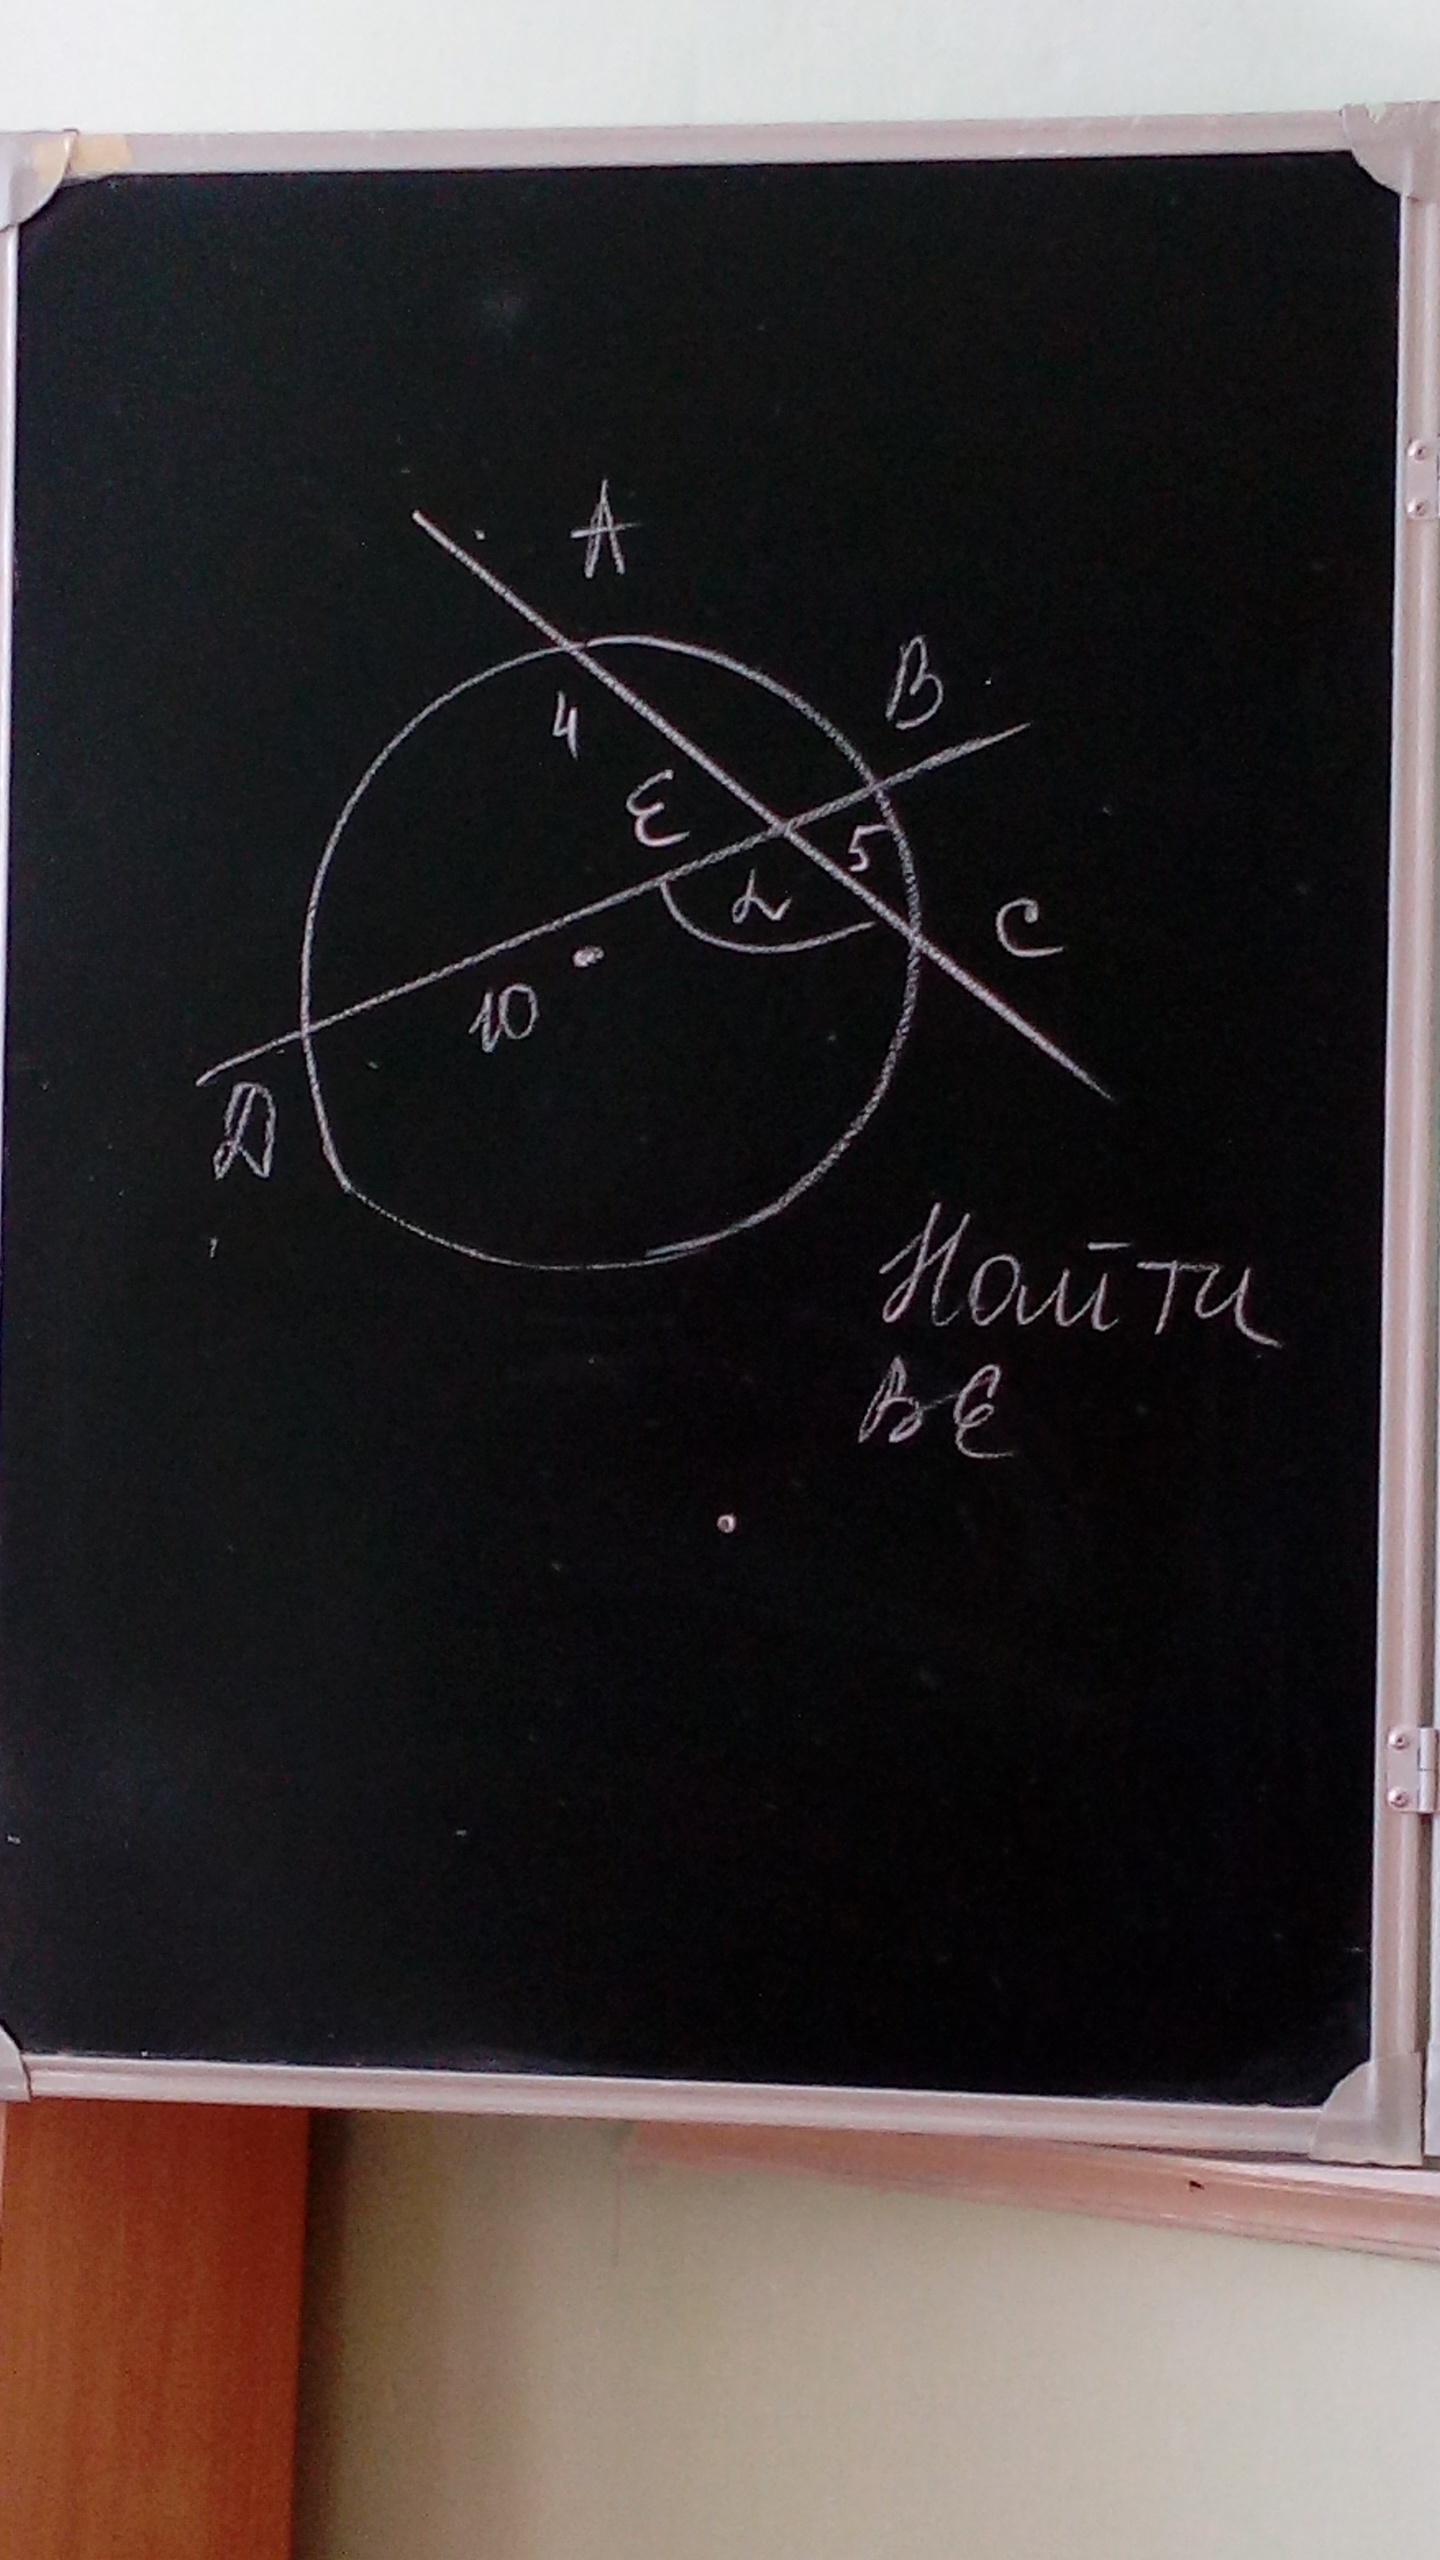 A
B
4
E
5
α
C
10
D
Найти
BE